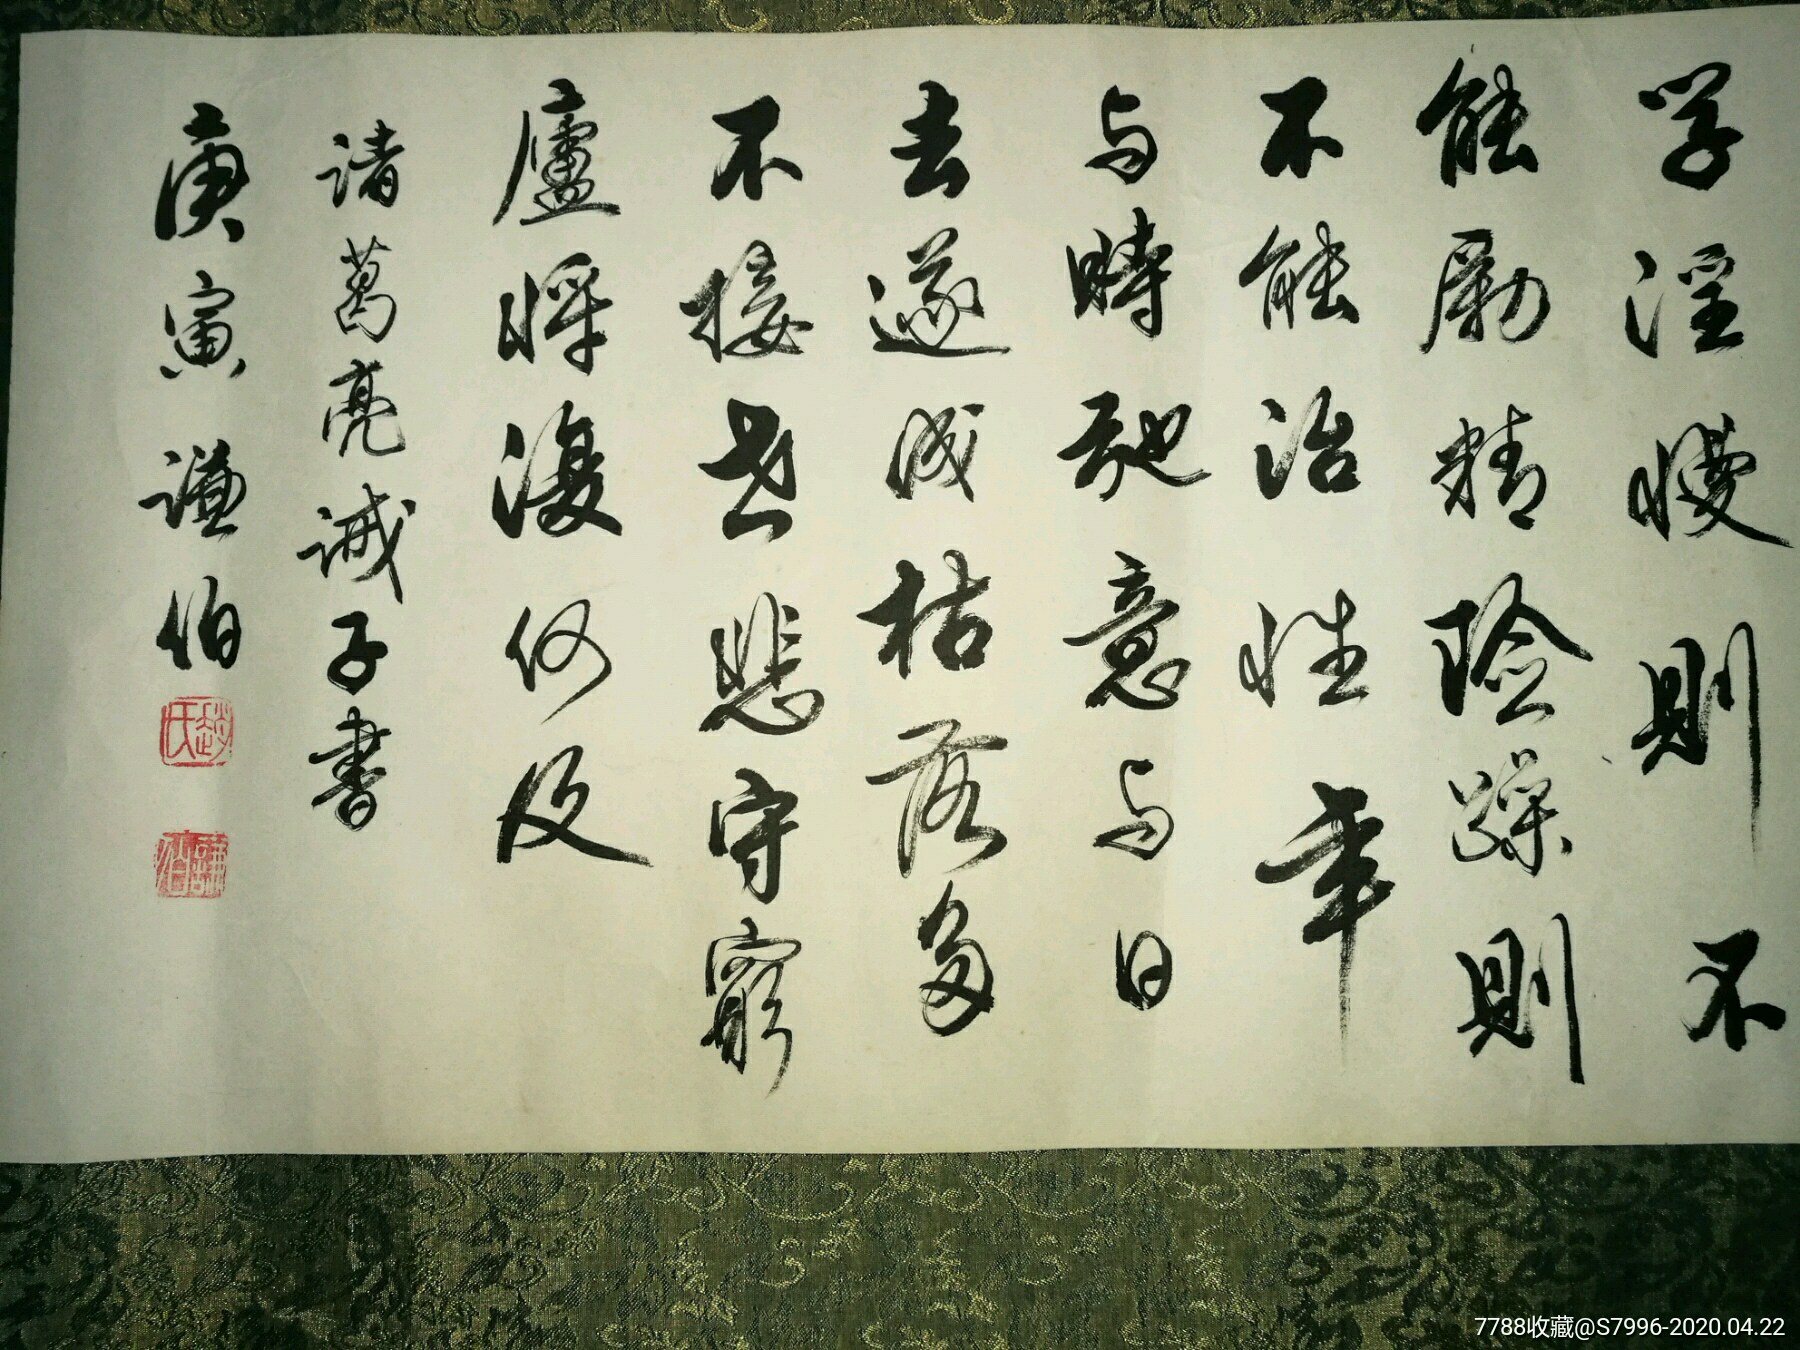 学淫慢則不
能励精险躁則
不能治性年
与時馳意与日
去遂成枯落多
不接世悲守窮
廬将復何及
诸葛亮诫子書
庚寅谦伯
趙氏
謙伯
7788收藏@S7996-2020.04.22